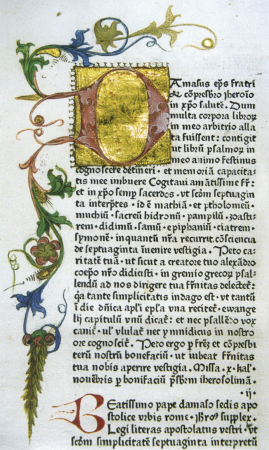 Damasus eps fratri
et cõpresbro Iheroĩo
in xp̃o salutẽ. Dum
multa corpora libroꝝ
in meo arbitrio alla
ta fuissent: contigit
ut librũ psalmoꝝ in
meo animo festinus
cognoscere deberem: et memoriã capacita
tis mee imbuere Cogitaui amãtissime fr̃
et in xp̃o semp sacerdos. vt scõm septuagin
ta interp̃tes
muchiũ. sacreũ
rem. didimũ. samũ. epiphaniũ.
symonẽ. inquantũ nr̃a recurrit cõsciencia
de septuaginta iuenire vestigia. Peto cari
tatẽ tuã. ut sicut a creatore tuo alexãdro
coepõ nr̃o didicisti. in gremio grecoꝝ psal
lendũ ad nos dirigere tua fr̃nitas delectet᷑:
q̃a tante simplicitatis indago est. vt tantũ
i die dñica apl̃i epl̃a vna recitet᷑: ewange
lij capitulũ vnũ dicat᷑: et nec psallẽcio vox
canit᷑. nec ymnidicus in nostro
ore cognoscit᷑. Peto ergo p fr̃ez et cõpresbi
terũ nostrũ bonifaciũ. ut iubeat fr̃nitas
tua nobis aperire vestigia. Missa .x. kal.
nouẽbris p bonifaciũ psb̃rm iherosolimã.
ij
Beatissimo pape damaso sedis apo
stolice vrbis rome. supplex.
Legi literas apostolatus vestri. vt
scõm simplicitatẽ septuaginta interpretũ